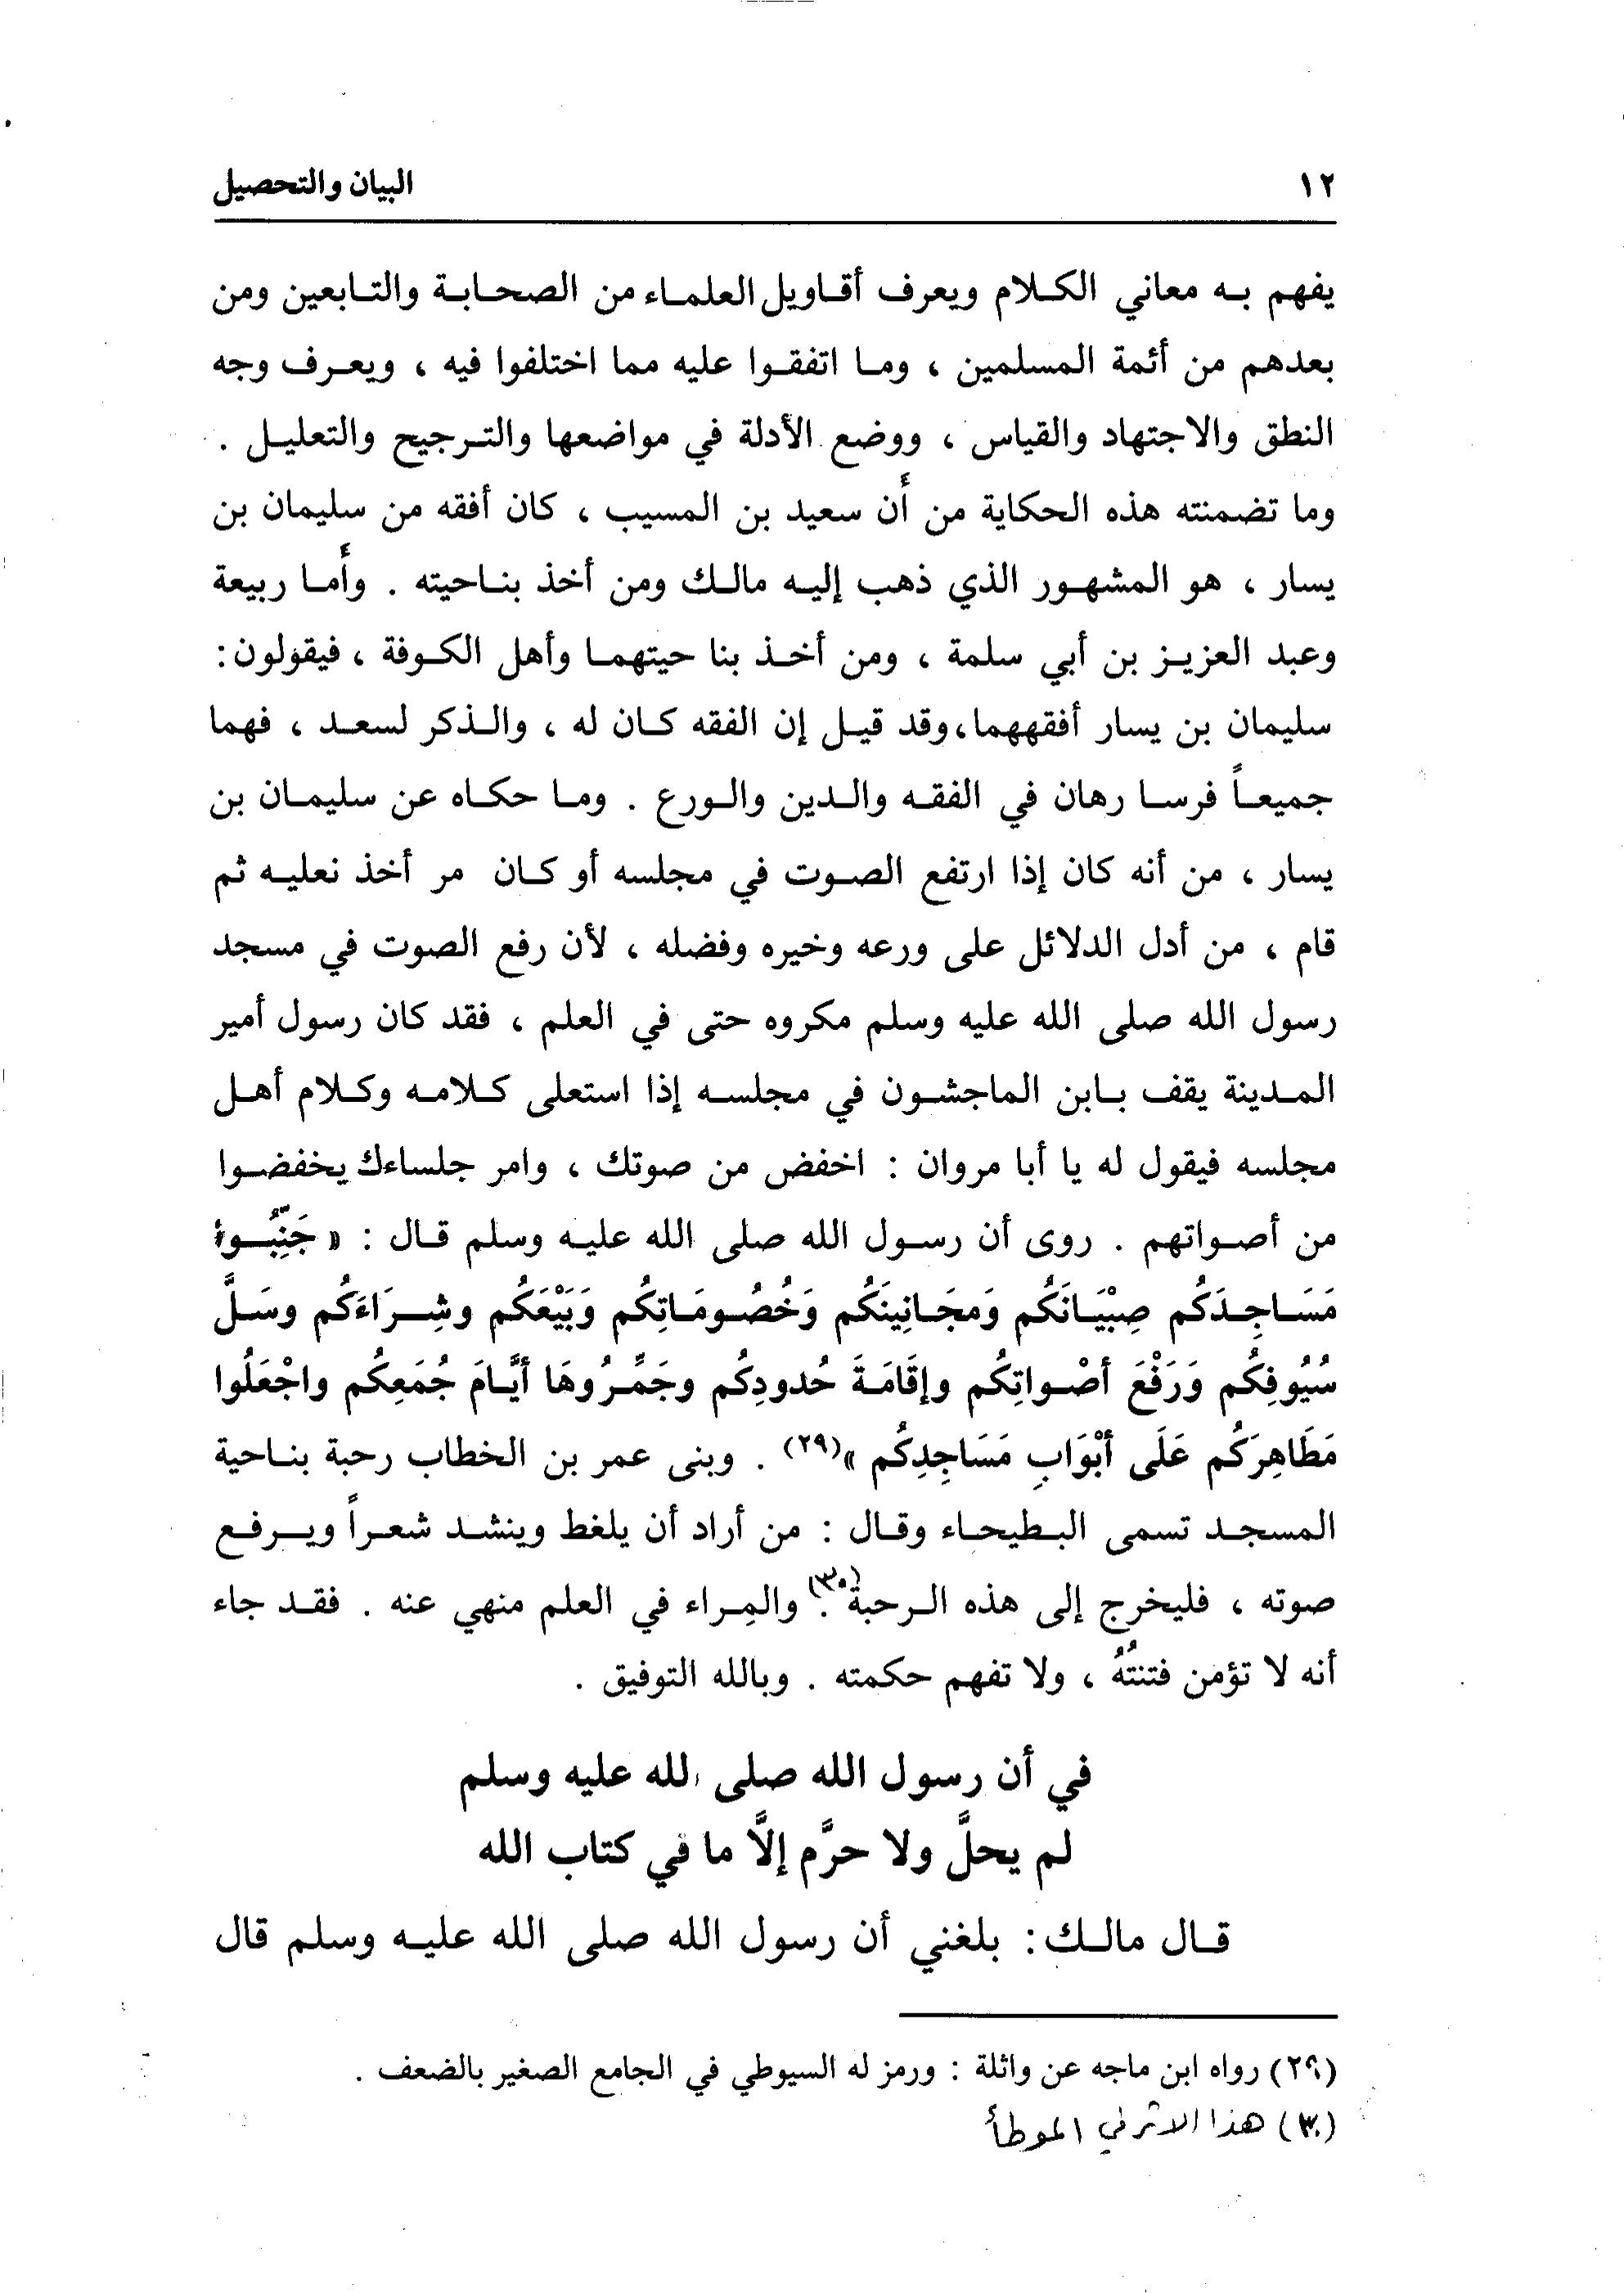 ١٢ البيان والتحصيل
يفهم به معاني الكلام ويعرف أقاويل العلماء من الصحابة والتابعين ومن
بعدهم من أئمة المسلمين ، وما اتفقوا عليه مما اختلفوا فيه ، ويعرف وجه
النطق والاجتهاد والقياس ، ووضع الأدلة في مواضعها والترجيح والتعليل .
وما تضمنته هذه الحكاية من أن سعيد بن المسيب ، كان أفقه من سليمان بن
يسار ، هو المشهور الذي ذهب إليه مالك ومن أخذ بناحيته . وأما ربيعة
وعبد العزيز بن أبي سلمة ، ومن أخذ بنا حيتهما وأهل الكوفة ، فيقولون:
سليمان بن يسار أفقههما، وقد قيل إن الفقه كان له ، والذكر لسعد ، فهما
جميعاً فرسا رهان في الفقه والدين والورع . وما حكاه عن سليمان بن
يسار ، من أنه كان إذا ارتفع الصوت في مجلسه أو كان مر أخذ نعليه ثم
قام ، من أدل الدلائل على ورعه وخيره وفضله ، لأن رفع الصوت في مسجد
رسول الله صلى الله عليه وسلم مكروه حتى في العلم ، فقد كان رسول أمير
المدينة يقف بابن الماجشون في مجلسه إذا استعلى كلامه وكلام أهل
مجلسه فيقول له يا أبا مروان : اخفض من صوتك ، وامر جلساءك يخفضوا
من أصواتهم . روى أن رسول الله صلى الله عليه وسلم قال : « جَنِّبُوا
مَسَاجِدَكُم صِبْيَانَكُم وَمجَانِينَكُم وَخُصُومَاتِكُم وَبَيْعَكُم وشِرَاءَكُم وسَلَّ
سُيُوفِكُم وَرَفْعَ أصْواتِكُم وإقَامَةَ حُدودِكُم وجَمِّرُوهَا أيَّامَ جُمَعِكُم واجْعَلُوا
مَطَاهِرَكُم عَلَى أبْوَابِ مَسَاجِدِكُم »(٢٩) . وبنى عمر بن الخطاب رحبة بناحية
المسجد تسمى البطيحاء وقال : من أراد أن يلغط وينشد شعراً ويرفع
صوته ، فليخرج إلى هذه الرحبة(٣٠). والمِراء في العلم منهي عنه . فقد جاء
أنه لا تؤمن فتنتُهُ ، ولا تفهم حكمته . وبالله التوفيق .
في أن رسول الله صلى الله عليه وسلم
لم يحلَّ ولا حرَّم إلاَّ ما في كتاب الله
قال مالك: بلغني أن رسول الله صلى الله عليه وسلم قال
(٢٩) رواه ابن ماجه عن واثلة : ورمز له السيوطي في الجامع الصغير بالضعف .
(٣٠) هذا الاثر في الموطأ